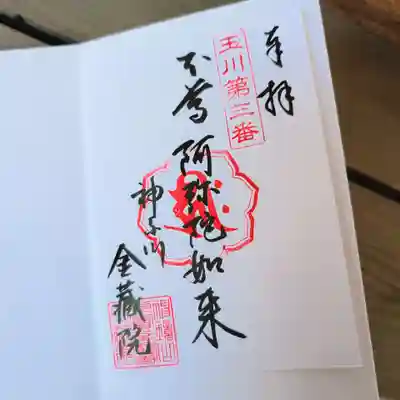 奉拝
玉川第三番
本尊 阿弥陀如来
神子門
金蔵院